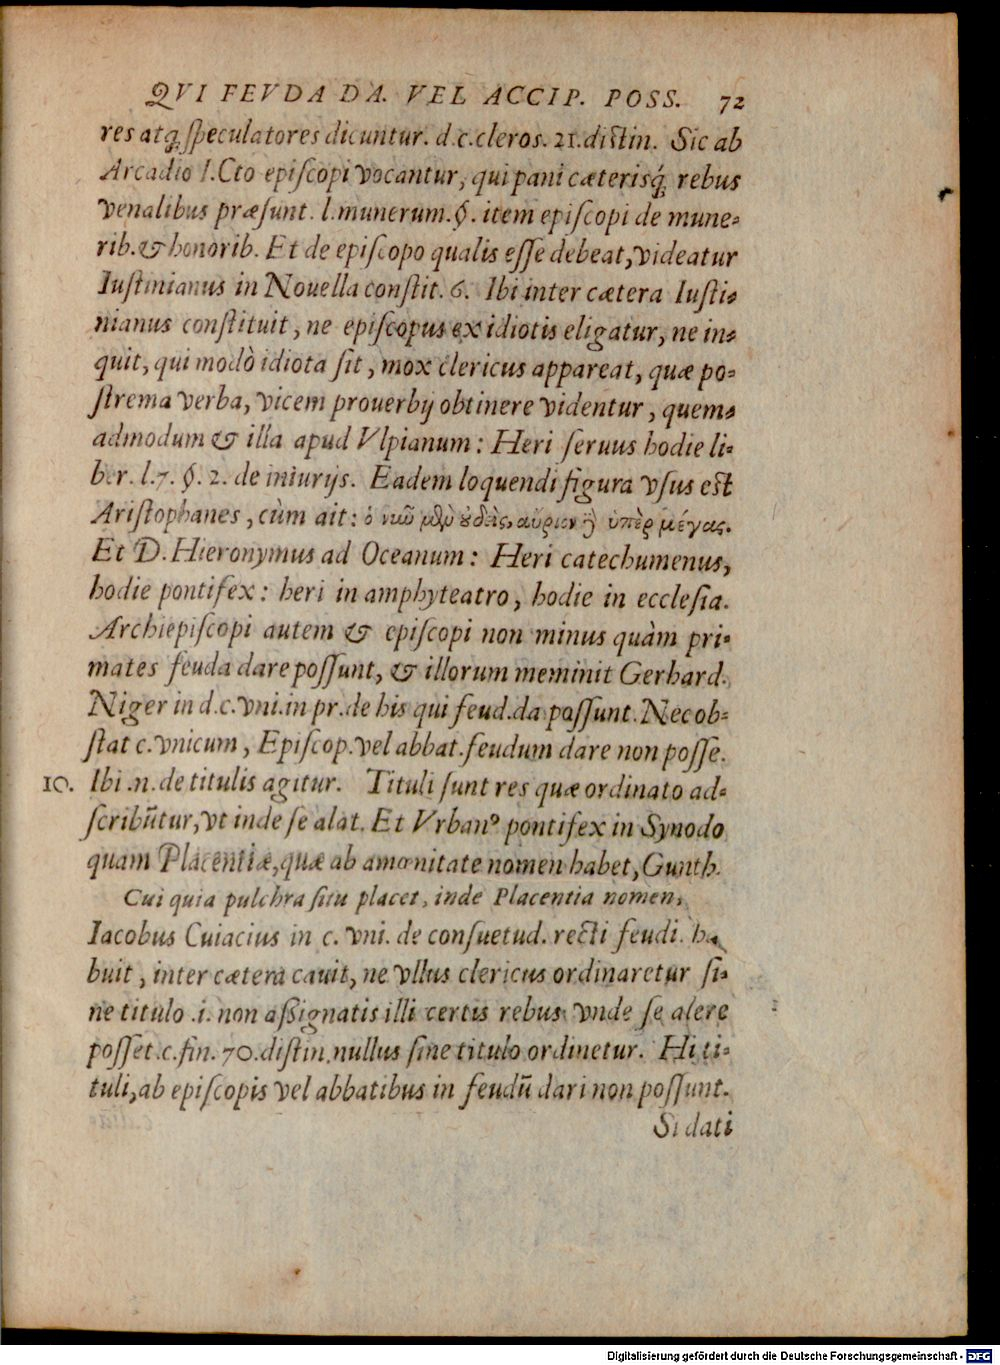 QVI FEVDA DA. VEL ACCIP. POSS. 72
res atq́ speculatores dicuntur. d.c.cleros. 21. distin. Sic ab
Arcadio I.Cto episcopi vocantur, qui pani cæterisq́ rebus
venalibus præsunt. l.munerum.§. item episcopi de mune-
rib.& honorib. Et de episcopo qualis esse debeat, videatur
Iustinianus in Nouella constit. 6. Ibi inter cætera Iusti-
nianus constituit, ne episcopus ex idiotis eligatur, ne in-
quit, qui modò idiota sit, mox clericus appareat, quæ po-
strema verba, vicem prouerbij obtinere videntur, quem-
admodum & illa apud Vlpianum: Heri seruus hodie li-
ber. l.7. §. 2. de iniurijs. Eadem loquendi figura vsus est
Aristophanes, cùm ait: ὁ νῦν μὲν οὐδεὶς, αὔριον δ' ὑπὲρ μέγας.
Et D. Hieronymus ad Oceanum: Heri catechumenus,
hodie pontifex: heri in amphyteatro, hodie in ecclesia.
Archiepiscopi autem & episcopi non minus quàm pri-
mates feuda dare possunt, & illorum meminit Gerhard.
Niger in d.c.vni.in pr.de his qui feud.da possunt. Nec ob-
stat c.vnicum, Episcop.vel abbat.feudum dare non posse.
10. Ibi .n. de titulis agitur. Tituli sunt res quæ ordinato ad-
scribũtur, vt inde se alat. Et Vrban⁹ pontifex in Synodo
quam Placentiæ, quæ ab amœnitate nomen habet, Gunth.
Cui quia pulchra situ placet, inde Placentia nomen,
Iacobus Cuiacius in c. vni. de consuetud. recti feudi. ha
buit, inter cætera cauit, ne vllus clericus ordinaretur si-
ne titulo .i. non assignatis illi certis rebus vnde se alere
posset.c.fin. 70.distin.nullus sine titulo ordinetur. Hi ti-
tuli, ab episcopis vel abbatibus in feudũ dari non possunt.
Si dati
Digitalisierung gefördert durch die Deutsche Forschungsgemeinschaft - DFG